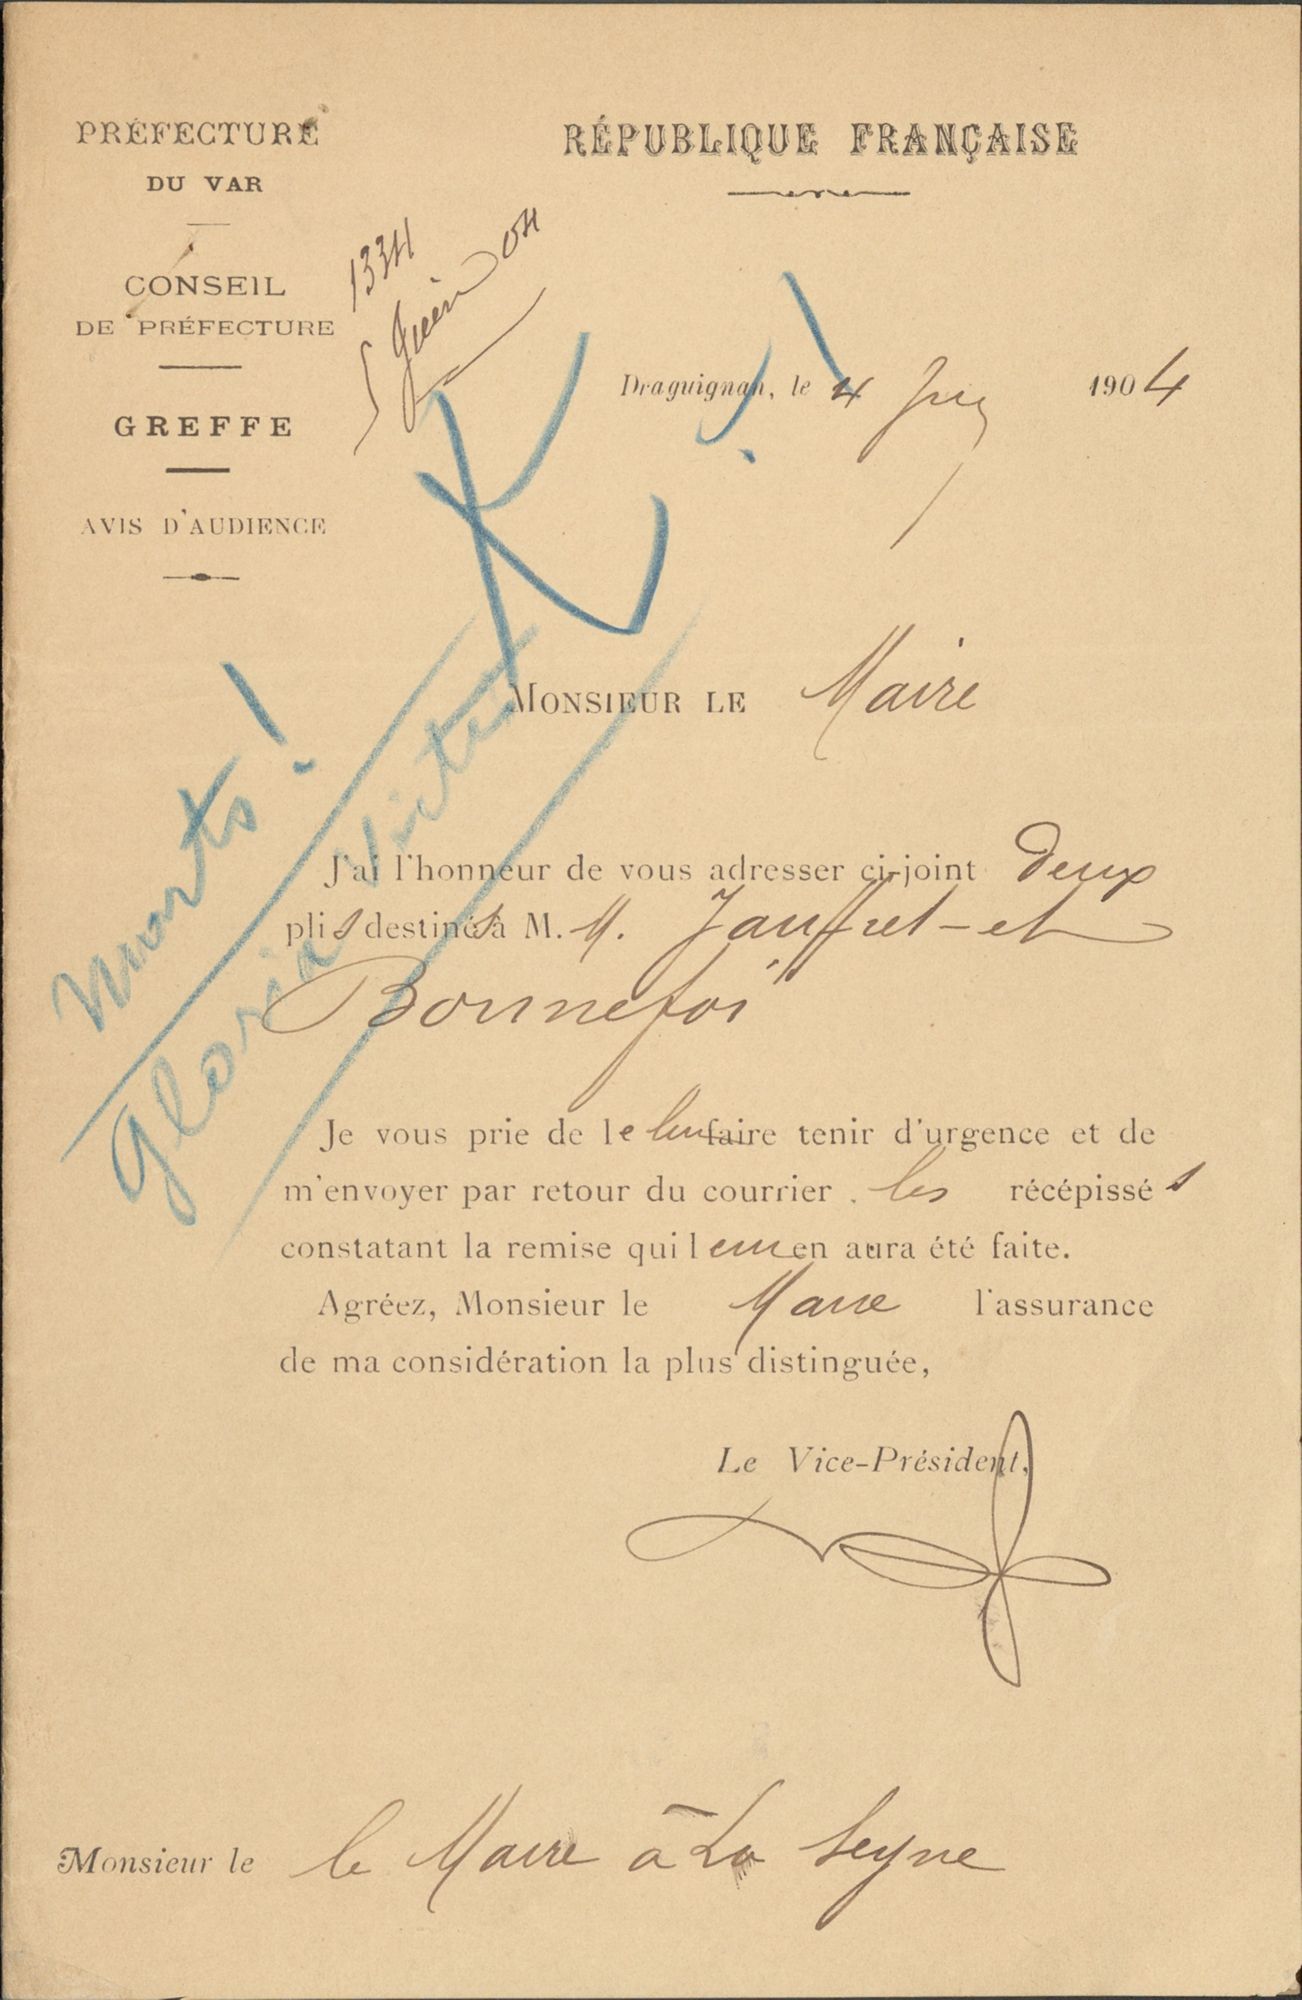 PRÉFECTURE
DU VAR
CONSEIL
DE PRÉFECTURE
GREFFE
AVIS D'AUDIENCE
1334
5 Juin 04
RÉPUBLIQUE FRANÇAISE
Draguignan, le 4 1904
K
MONSIEUR LE Maire
morts!
Gloria Victis
J'ai l'honneur de vous adresser ci-joint deux
plis destinés à M. M. Jauffret - et
Bonnefoi
Je vous prie de le leur faire tenir d'urgence et de
m'envoyer par retour du courrier les récépissés
constatant la remise qui leur en aura été faite.
Agréez, Monsieur le Maire l'assurance
de ma considération la plus distinguée,
Le Vice-Président,
Monsieur le le Maire à La Seyne